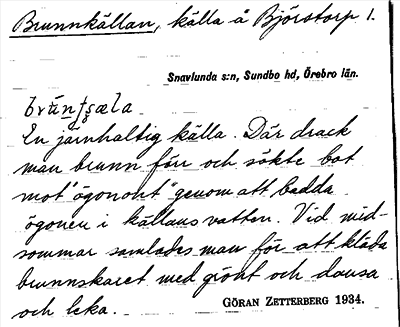 Brunnkällan, källa å Björstorp 1.
Snavlunda s:n, Sundbo hd, Örebro län.
En järnhaltig källa. Där drack
man brunn förr och sökte bot
mot "ögonont" genom att badda
ögonen i källans vatten. Vid mid-
sommar samlades man för att kläda
brunnskaret med grönt och dansa
och leka.
GÖRAN ZETTERBERG 1934.